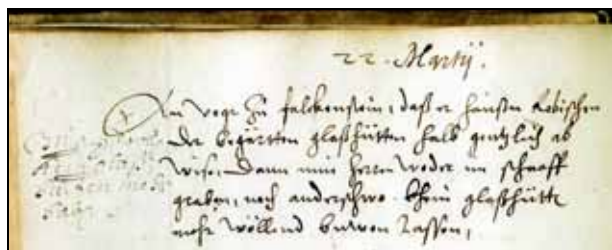 22. Martij.
An vogt zu falckenstein, daß er hansen Robischen
der begärtten glaßhütten halb gentzlich ab
wise, Dann min herren weder im schaaff
graben, noch anderschwo khein glaßhütte
mehr wöllend buwen lassen,